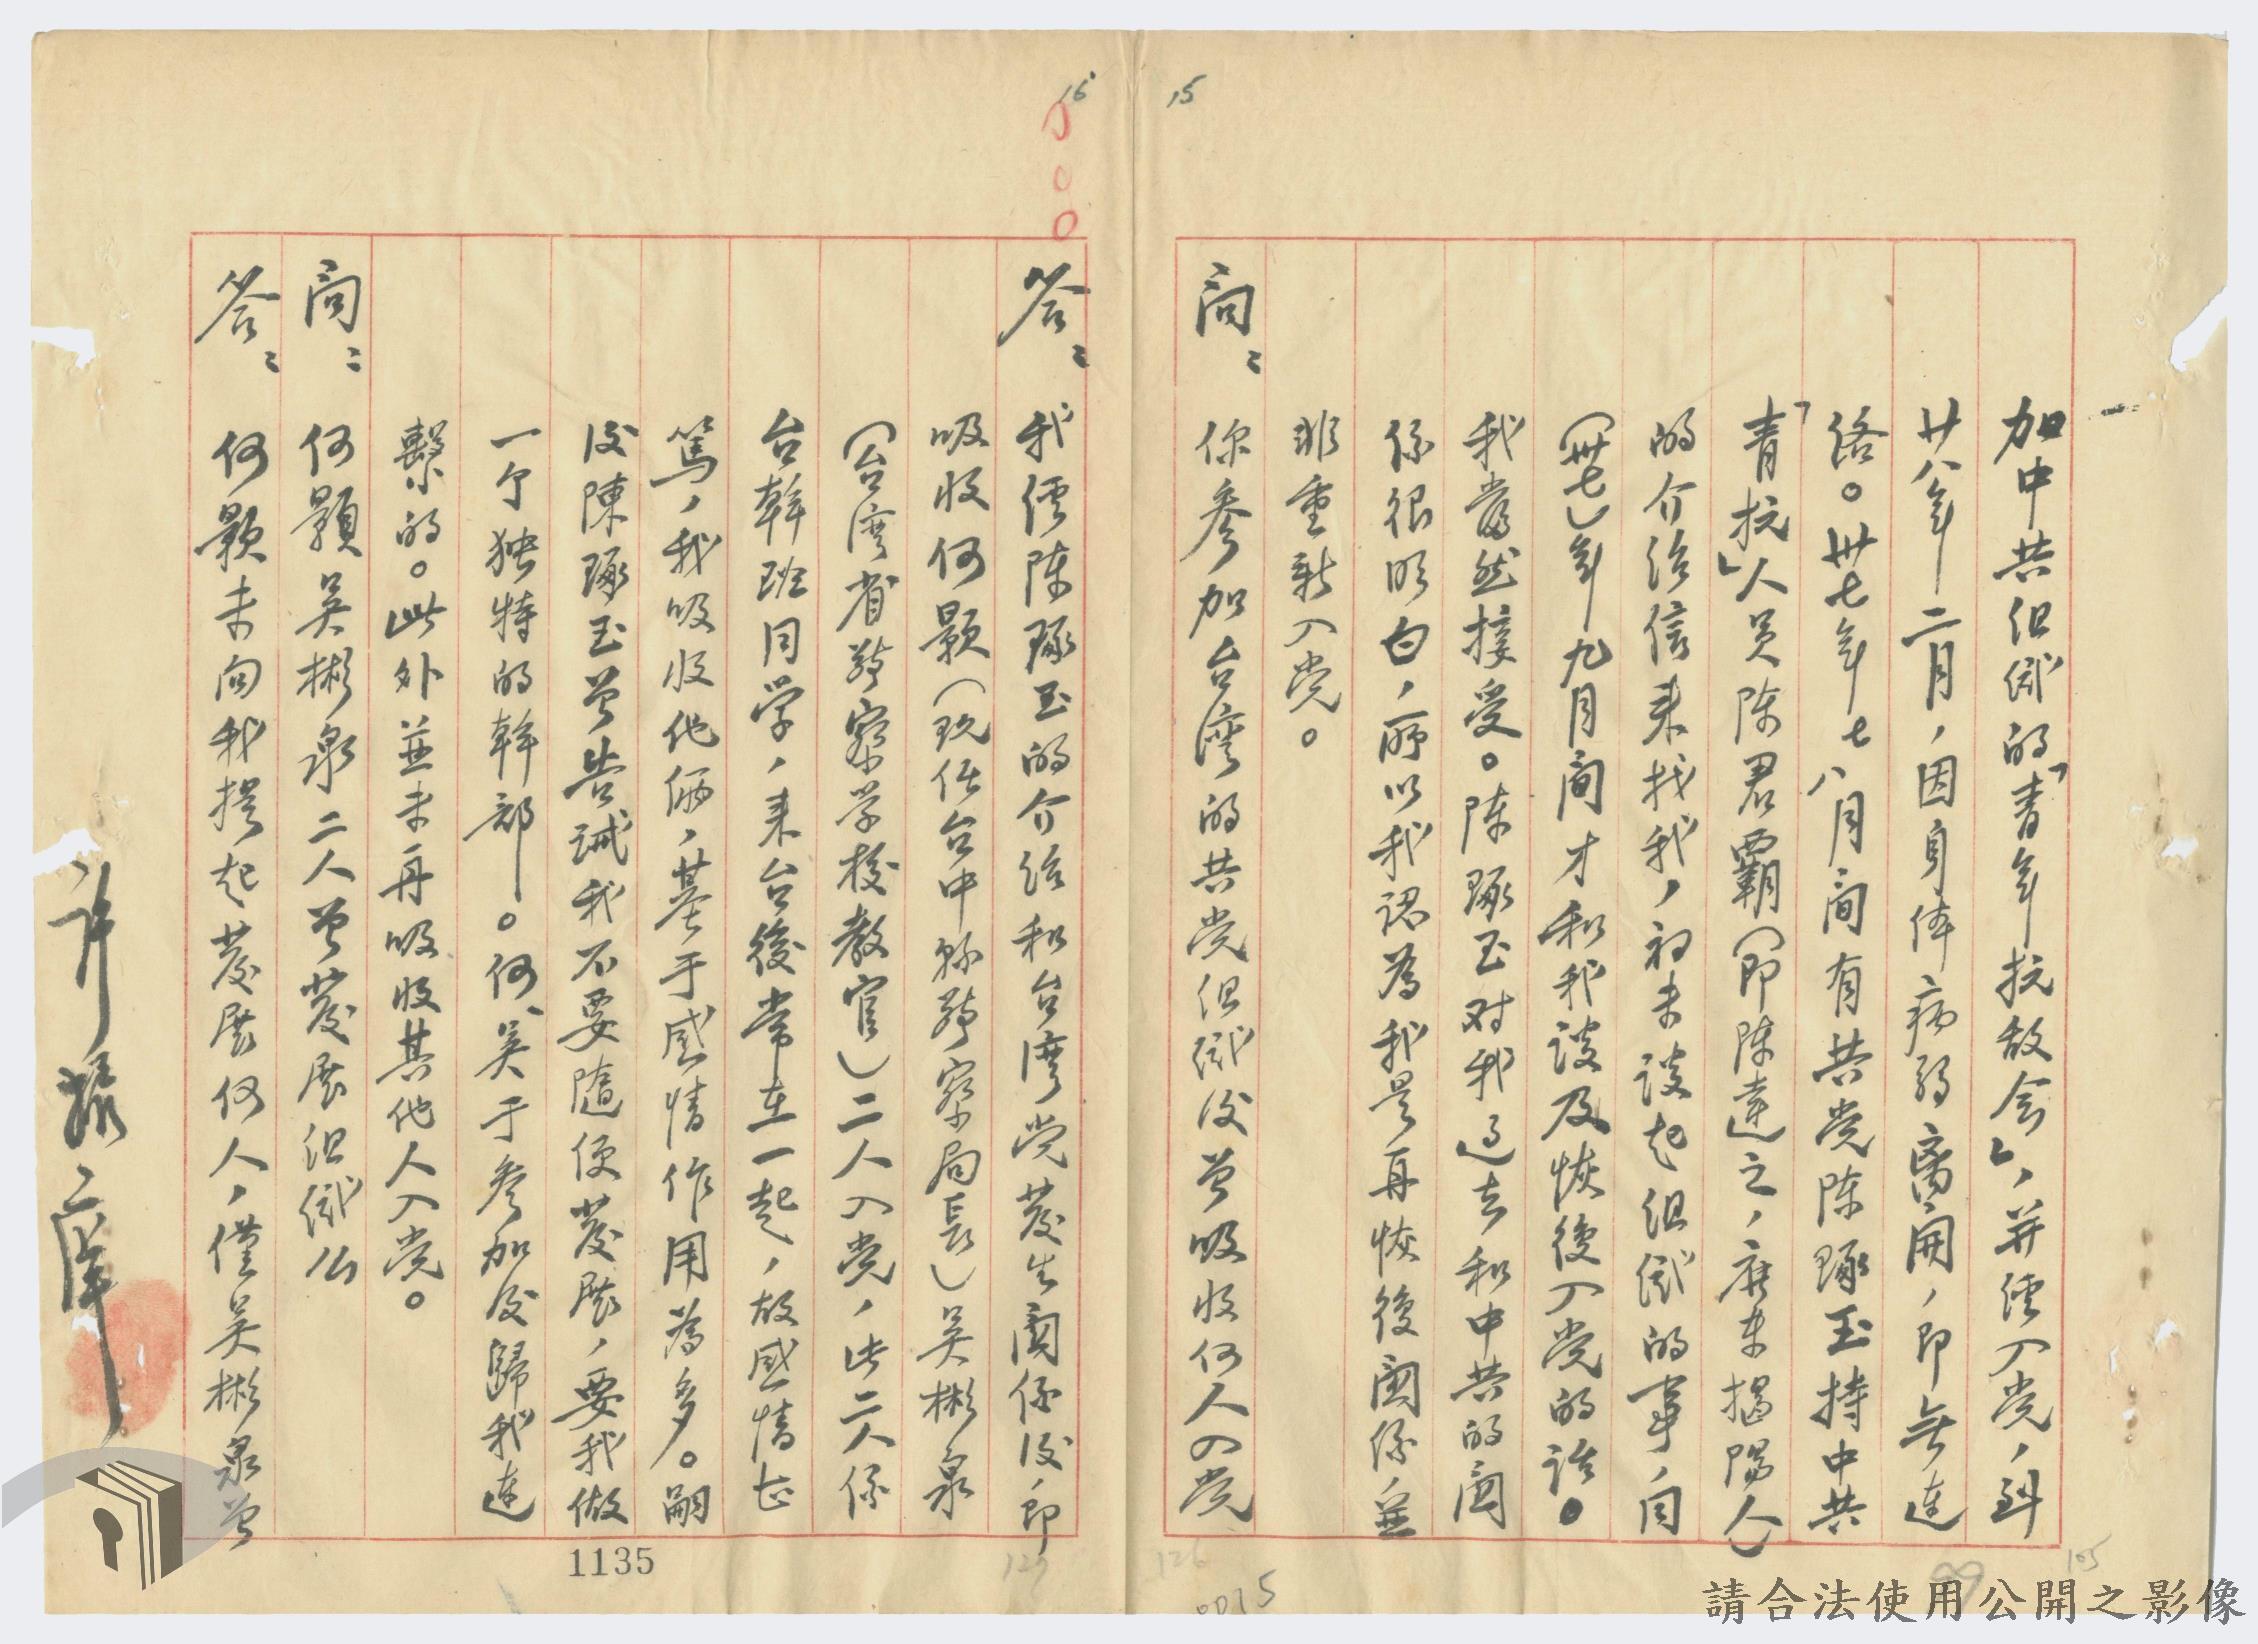 15
加中共组織的「青年抗敌会」，并僅入党，到
廿八年二月，因身体病弱離開，即無連
络。卅七年七八月间有共党陈琢玉持中共
「青抗」人员陈君霸（即陈達之，廣东揭陽人）
的介绍信来找我，初未談起组織的事，同
（卅七）年九月间才和我談及恢復入党的話。
我當然接受。陈琢玉对我过去和中共的関
係很明白，所以我認為我是再恢復関係並
非重新入党。
問：你参加台湾的共党组織後曾吸收何人入党
答：我經陈琢玉的介绍和台湾党发生関係後，即
吸收何顥（現任台中縣警察局局長）吳彬泉
（台湾省警察学校教官）二人入党，此二人係
台幹班同学，来台後常在一起，故感情甚
篤，我吸收他俩，基于感情作用為多。嗣
後陳琢玉曾告誡我不要隨便發展，要我做
一个独特的幹部。何、吳于参加後歸我連
繫的。此外並未再吸收其他人入党。
問：何顥吳彬泉二人曾发展组織么
答：何顥未向我提起发展何人，僅吳彬泉曾
16
1135
127
126
0015
99
105
請合法使用公開之影像